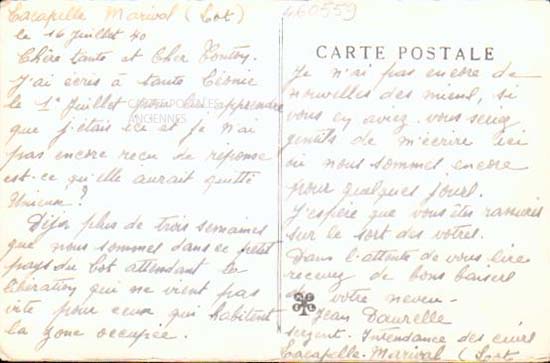 Lacapelle Marival (Lot)
le 16 Juillet 40
Chère tante et Cher Tonton,
J'ai écris à tante Léonie
le 1er Juillet pour lui apprendre
que j'étais ici et je n'ai
pas encore reçu de réponse
est-ce qu'elle aurait quitté
Unieux ?
Déjà plus de trois semaines
que nous sommes dans ce petit
pays du Lot attendant la
libération qui ne vient pas
vite pour ceux qui habitent
la zone occupée.
460559
CARTE POSTALE
Je n'ai pas encore de
nouvelles des miens, si
vous en aviez vous seriez
gentils de m'écrire ici
où nous sommes encore
pour quelques jours.
J'espère que vous êtes rassurés
sur le sort des votres.
Dans l'attente de vous lire
recevez de bons baisers
de votre neveu -
Jean
sergent. Intendance des
Lacapelle-Marival Lot
CARTES POSTALES
ANCIENNES